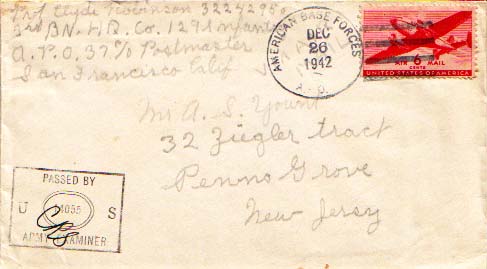 Pvt Clyde Robinson 32242950
3rd BN. HQ. Co. 129 Infantry
A.P.O. 37 % Postmaster
San Francisco Calif.
AMERICAN BASE FORCES
DEC
26
1942
A.P.O.
AIR 6 MAIL
CENTS
UNITED STATES OF AMERICA
Mr A. S. Yount
32 Ziegler tract
Penns Grove
New Jersey
PASSED BY
U 14055 S
ARMY EXAMINER